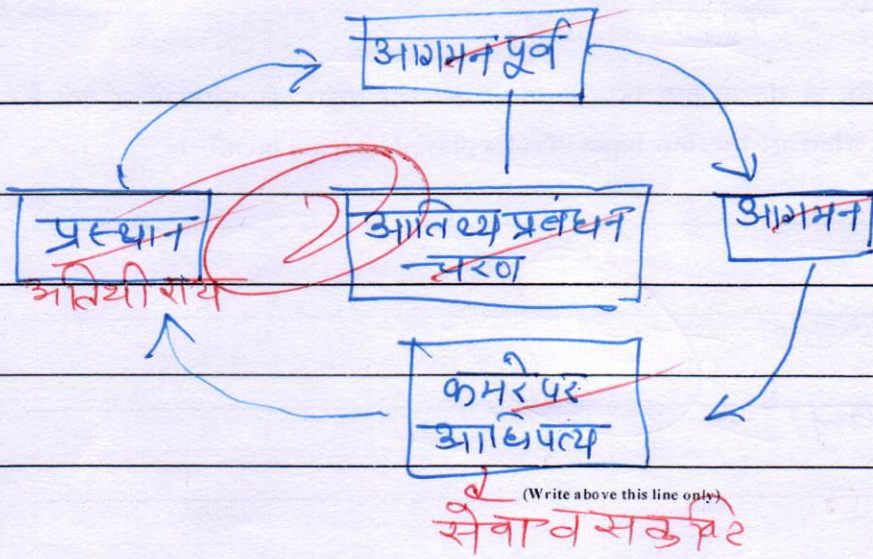 आगमन पूर्व
प्रस्थान
आतिथ्य प्रबंधन
चरण
आगमन
अतिथी राय
कमरे पर
आधिपत्य
(Write above this line only)
सेवा व